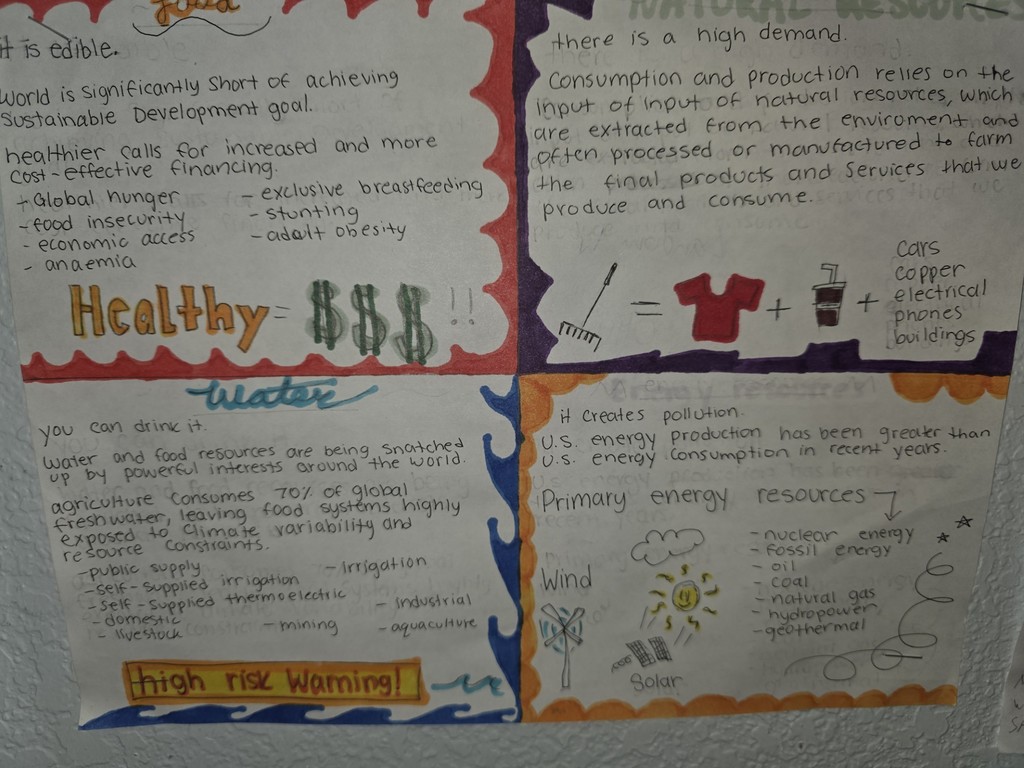 food
it is edible.
World is significantly short of achieving
Sustainable Development goal.
healthier calls for increased and more
cost-effective financing.
+ Global hunger
- food insecurity
- economic access
- anaemia
- exclusive breastfeeding
- stunting
- adult obesity
Healthy = $$$!!
NATURAL RESOURCES
there is a high demand.
Consumption and production relies on the
input of input of natural resources, which
are extracted from the enviroment and
often processed or manufactured to farm
the final products and services that we
produce and consume.
= + +
cars
copper
electrical
phones
buildings
Water
you can drink it.
Water and food resources are being snatched
up by powerful interests around the world.
agriculture consumes 70% of global
freshwater, leaving food systems highly
exposed to climate variability and
resource constraints.
- public supply
- self-supplied irrigation
- self-supplied thermoelectric
- domestic
- livestock
- mining
- Irrigation
- Industrial
- aquaculture
high risk Warning!
it creates pollution.
U.S. energy production has been greater than
U.S. energy consumption in recent years.
Primary energy resources
Wind
Solar
- nuclear energy
- fossil energy
- oil
- coal
- natural gas
- hydropower
- geothermal